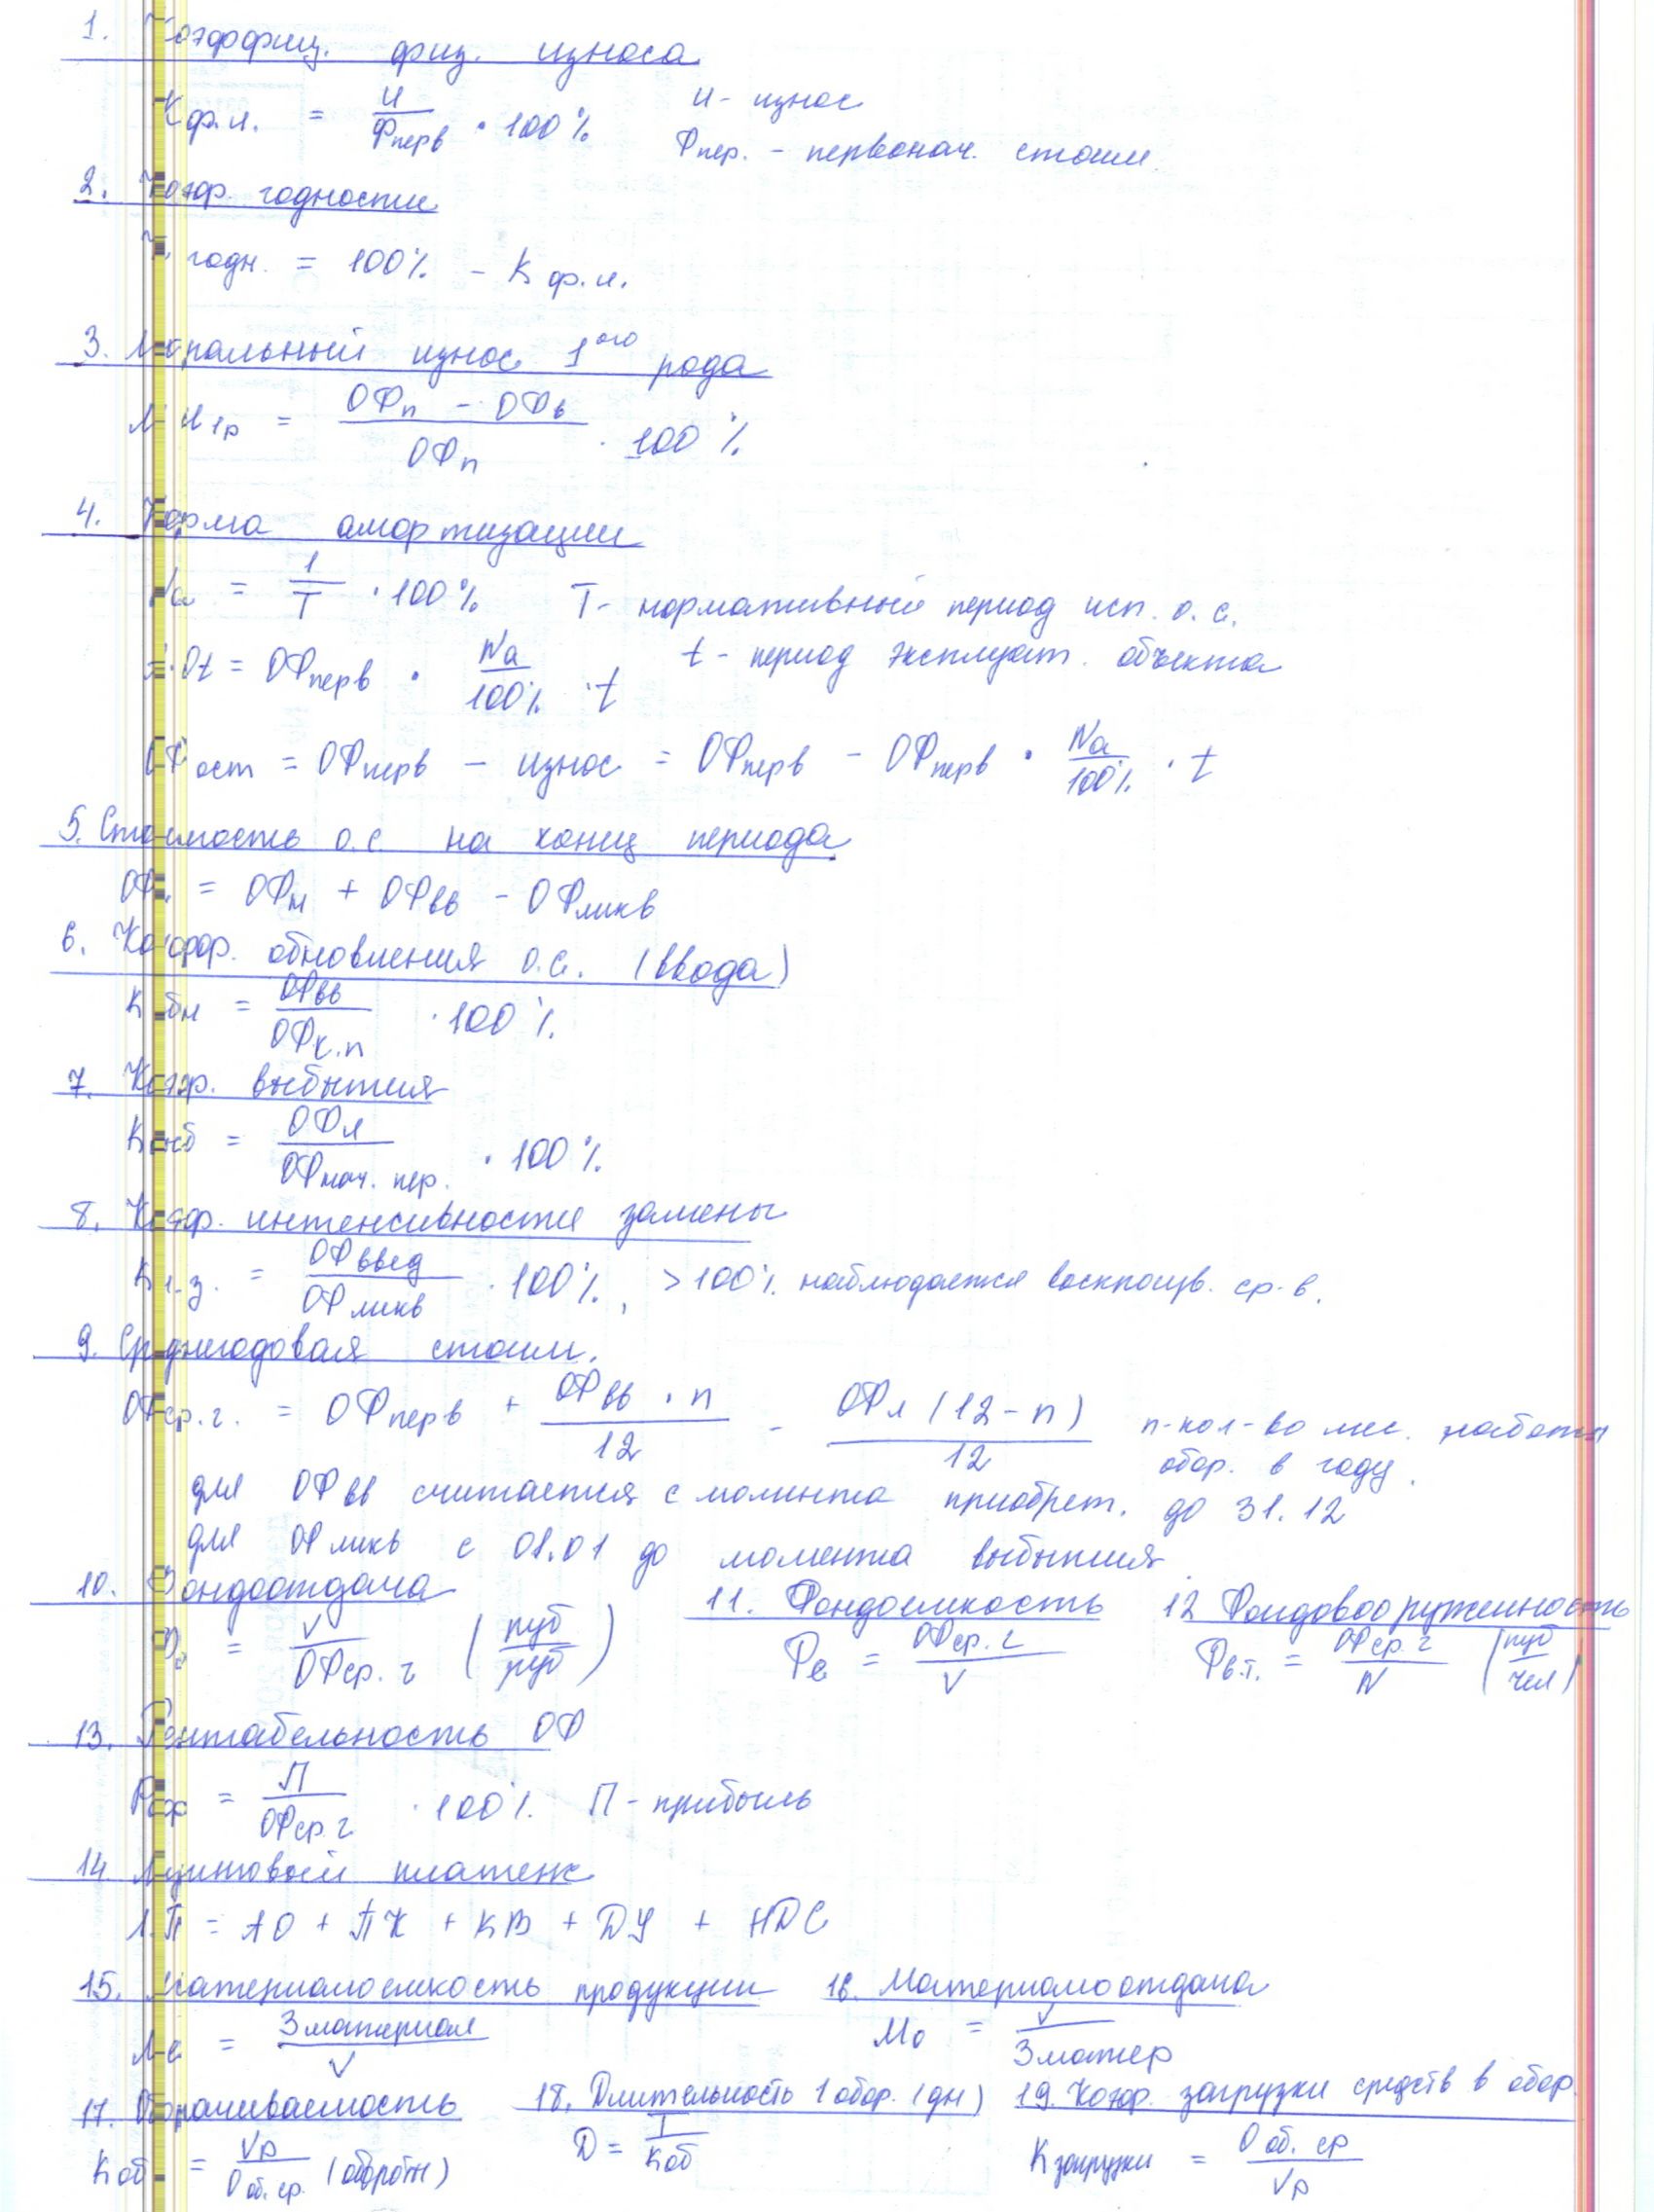 1. Коэффиц. физ. износа
Кф.и. = И/Фперв · 100% И - износ
Фпер. - первонач. стоим.
2. Коэф. годности
К годн. = 100% - К ф.и.
3. Моральный износ 1ого рода
МИ1р = (ОФп - ОФв)/ОФп · 100%
4. Норма амортизации
Na = 1/T · 100% T - нормативный период исп. о.с.
Оt = ОФперв · Na/100% · t t - период эксплуат. объекта
ОФост = ОФперв - износ = ОФперв - ОФперв · Na/100% · t
5. Стоимость о.с. на конец периода
ОФк = ОФн + ОФвв - ОФликв
6. Коэфф. обновления о.с. (ввода)
Кобн = ОФвв/ОФк.п · 100%
7. Коэф. выбытия
Квыб = ОФл/ОФнач. пер. · 100%
8. Коэф. интенсивности замены
Ки.з. = ОФввед/ОФликв · 100%, >100% наблюдается воспроизв. ср-в.
9. Среднегодовая стоим.
ОФср.г. = ОФперв + ОФвв · n/12 - ОФл (12-n)/12 n-кол-во мес. работы
обор. в году.
для ОФвв считается с момента приобрет. до 31.12
для ОФликв с 01.01 до момента выбытия
10. Фондоотдача 11. Фондоемкость 12 Фондовооруженность
Фо = V/ОФср.г (руб/руб) Фе = ОФср.г/V Фв.т. = ОФср.г/N (руб/чел)
13. Рентабельность ОФ
Роф = П/ОФср.г · 100% П - прибыль
14. Лизинговый платеж
Л.П = АО + ПК + КВ + ДУ + НДС
15. Материалоемкость продукции 16. Материалоотдача
Ме = Зматериал/V Мо = V/Зматер
17. Оборачиваемость 18. Длительность 1 обор. (дн) 19. Коэф. загрузки средств в обор.
Коб = Vр/Ооб.ср. (оборотн) D = T/Коб Кзагрузки = Ооб.ср/Vр